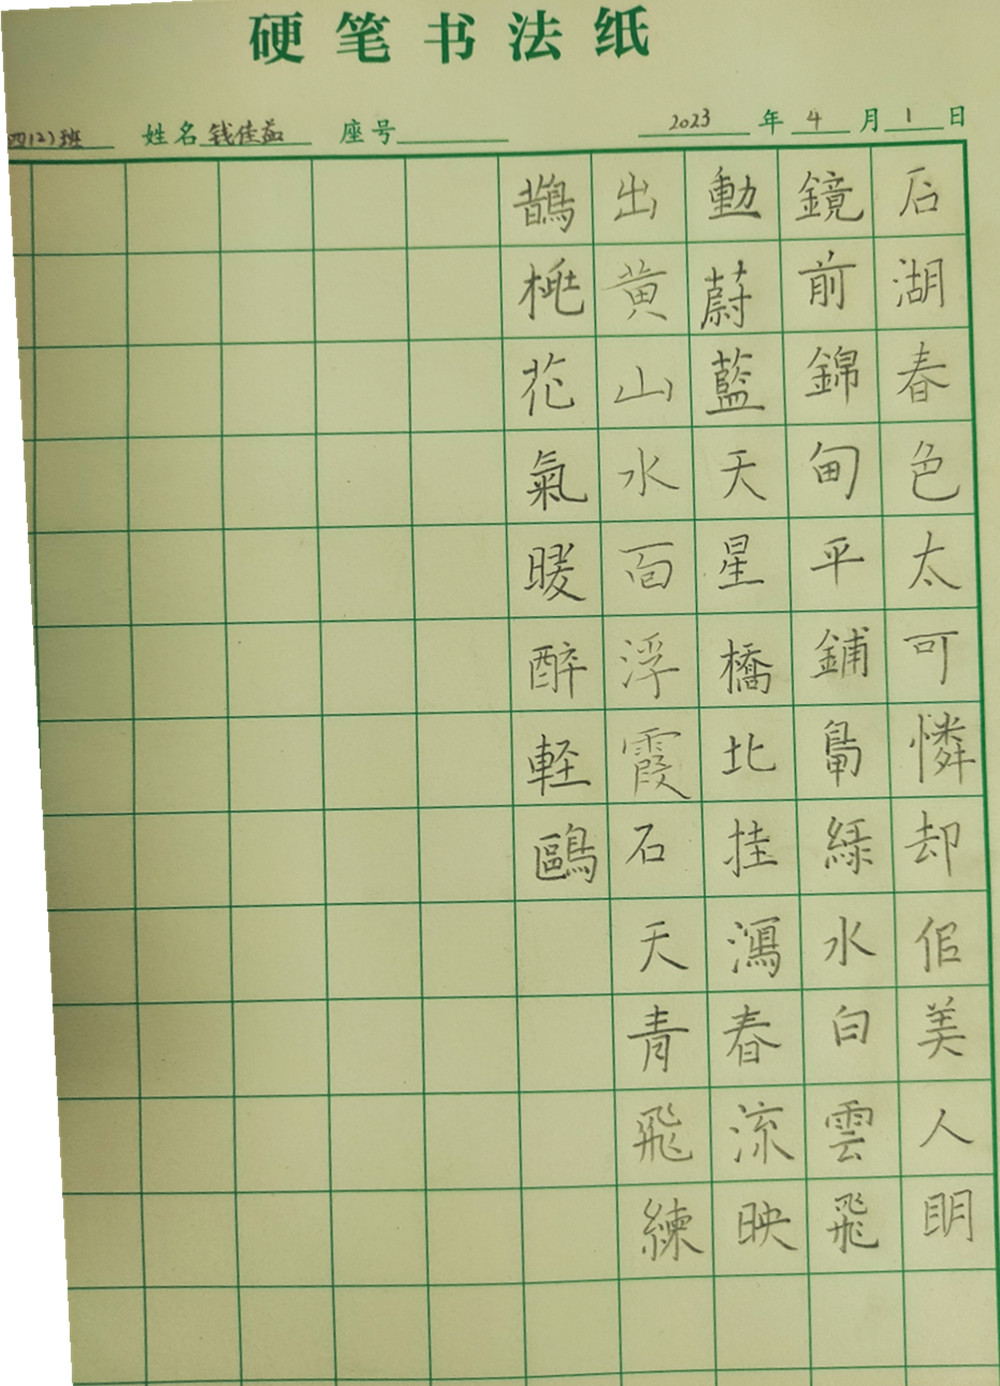 硬笔书法纸
四(2)班 姓名 钱佳茹 座号 2023 年 4 月 1 日
后湖春色太可憐却侶美人明
鏡前錦甸平鋪鳧綠水白雲飛
動蔚藍天星橋北挂瀉春流映
出黃山水面浮霞石天青飛練
鵲桃花氣暖醉軽鷗